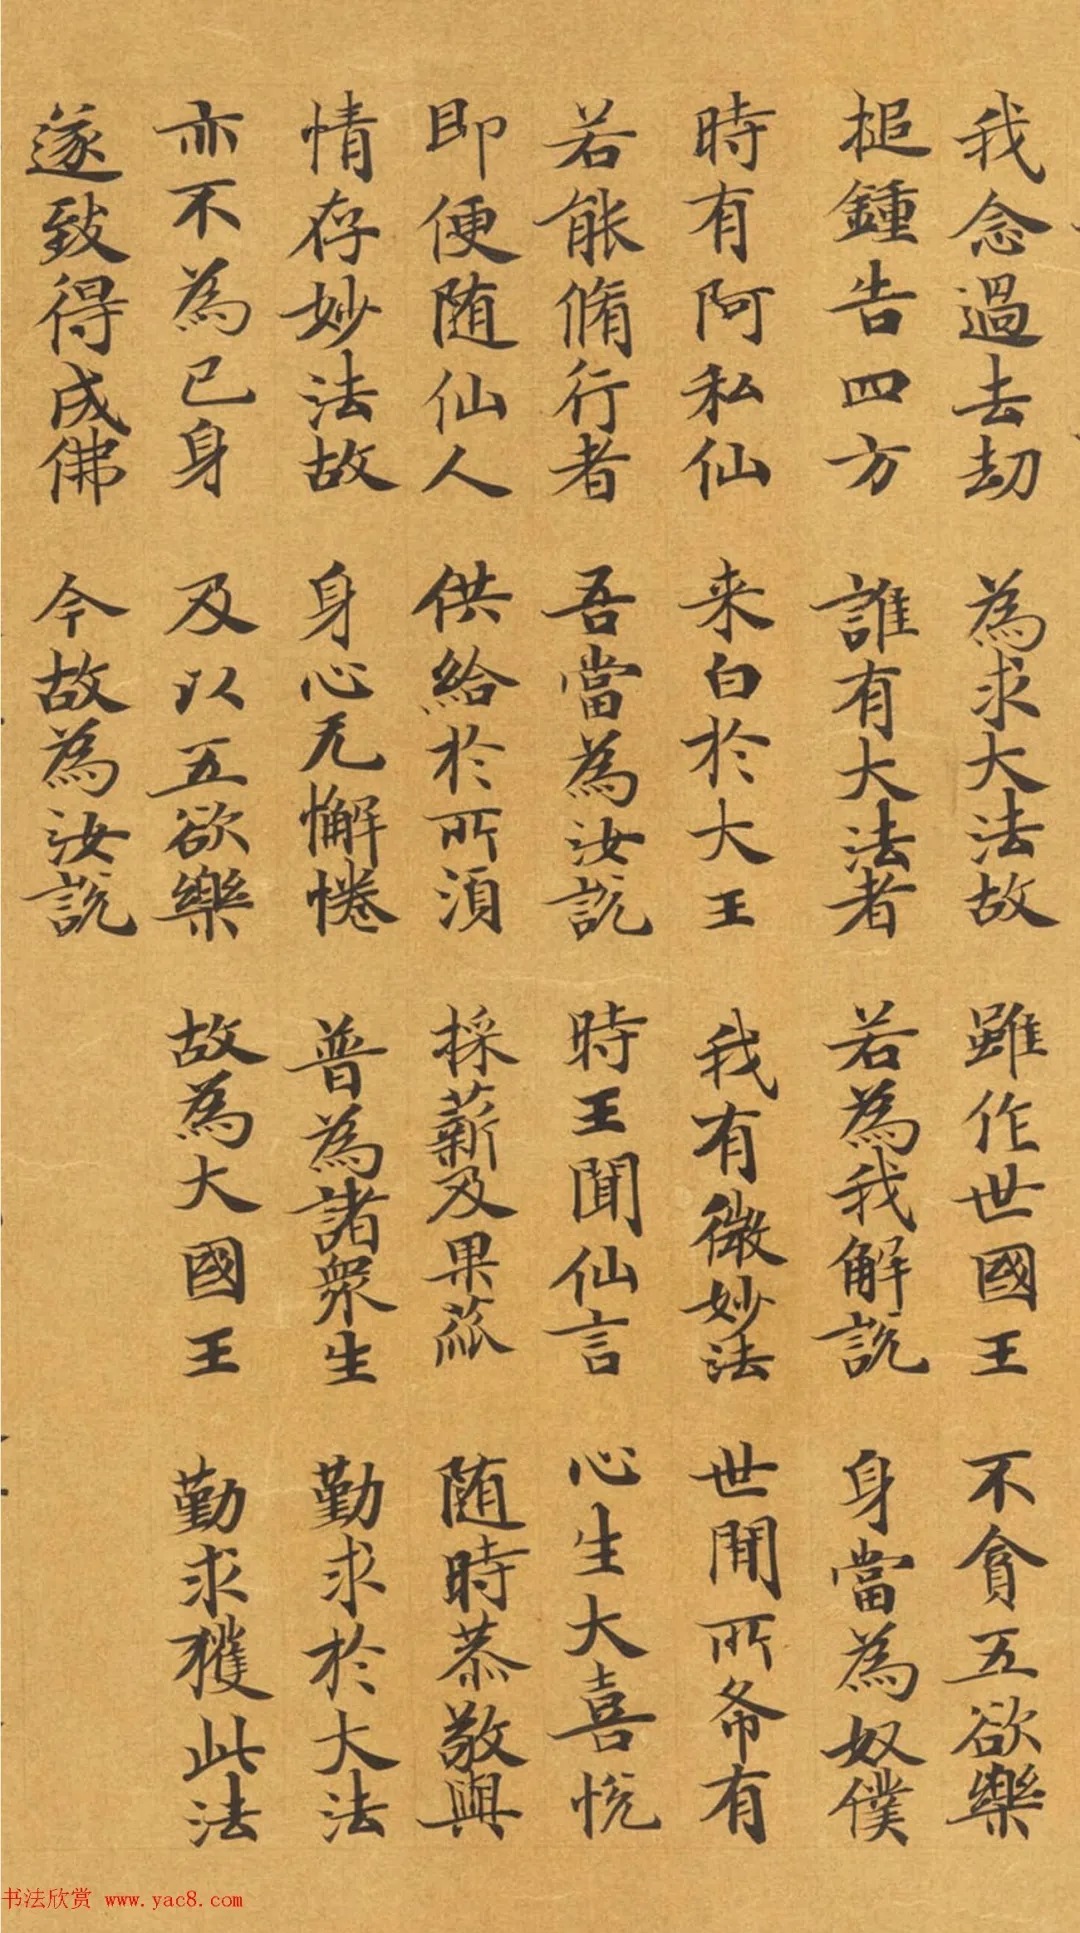 我念過去劫 為求大法故 雖作世國王 不貪五欲樂
槌鍾告四方 誰有大法者 若為我解說 身當為奴僕
時有阿私仙 来白於大王 我有微妙法 世間所希有
若能脩行者 吾當為汝說 時王聞仙言 心生大喜悅
即便随仙人 供給於所須 採薪及果蓏 随時恭敬與
情存妙法故 身心无懈惓 普為諸衆生 勤求於大法
亦不為己身 及以五欲樂 故為大國王 勤求獲此法
遂致得成佛 今故為汝說
书法欣赏 www.yac8.com